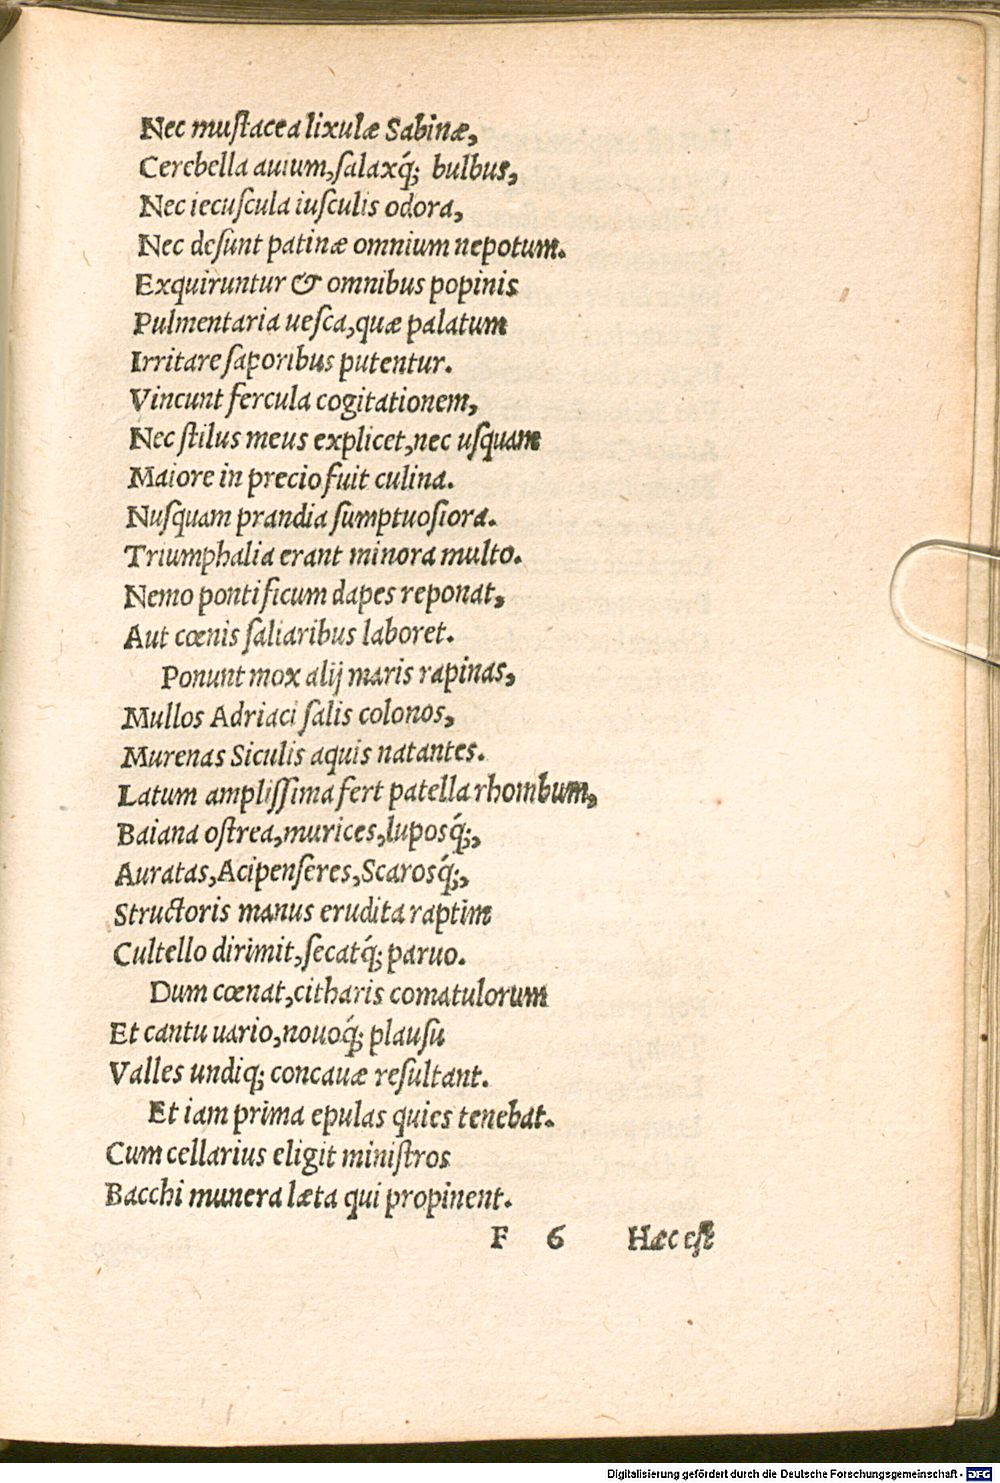 Nec muſtacea lixulæ Sabinæ,
Cerebella auium, ſalaxq́; bulbus,
Nec iecuſcula iuſculis odora,
Nec deſunt patinæ omnium nepotum.
Exquiruntur & omnibus popinis
Pulmentaria ueſca, quæ palatum
Irritare ſaporibus putentur.
Vincunt fercula cogitationem,
Nec ſtilus meus explicet, nec uſquam
Maiore in precio fuit culina.
Nuſquam prandia ſumptuoſiora.
Triumphalia erant minora multo.
Nemo pontificum dapes reponat,
Aut cœnis ſaliaribus laboret.
Ponunt mox alij maris rapinas,
Mullos Adriaci ſalis colonos,
Murenas Siculis aquis natantes.
Latum ampliſſima fert patella rhombum,
Baiana oſtrea, murices, luposq́;,
Auratas, Acipenſeres, Scarosq́;,
Structoris manus erudita raptim
Cultello dirimit, ſecatq́; paruo.
Dum cœnat, citharis comatulorum
Et cantu uario, nouoq́; plauſu
Valles undiq; concauæ reſultant.
Et iam prima epulas quies tenebat.
Cum cellarius eligit miniſtros
Bacchi munera læta qui propinent.
F 6 Hæc eſt
Digitalisierung gefördert durch die Deutsche Forschungsgemeinschaft - DFG